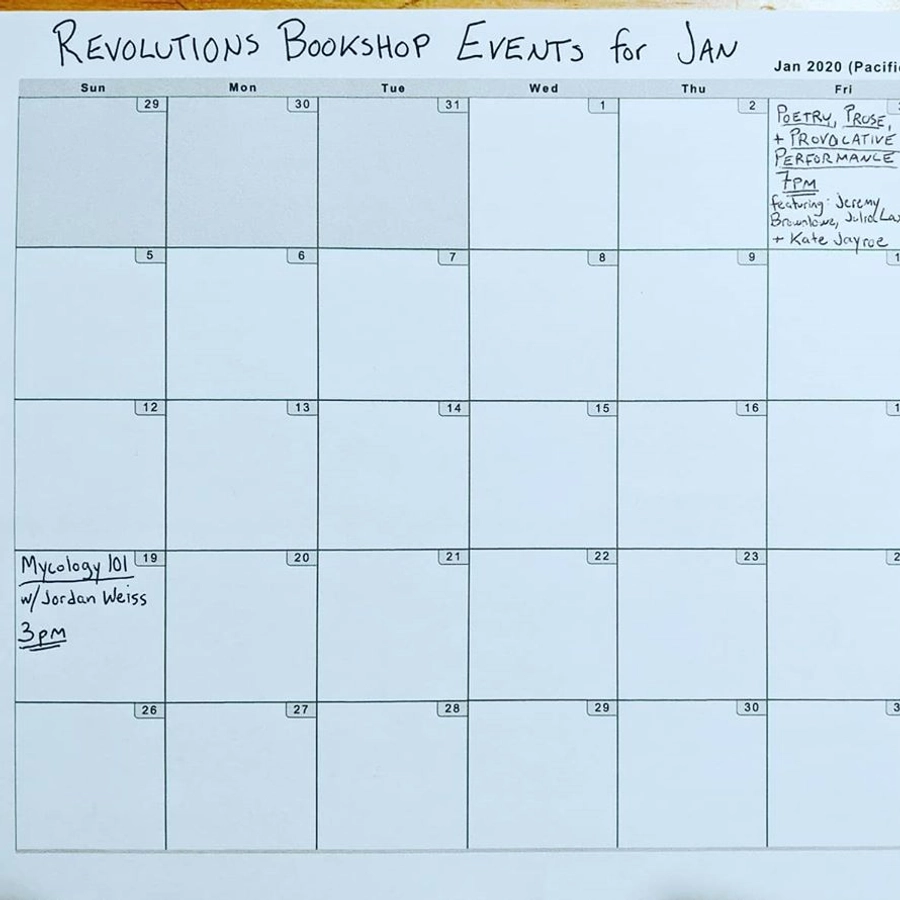 REVOLUTIONS BOOKSHOP EVENTS for JAN
Jan 2020 (Pacific
Sun Mon Tue Wed Thu Fri
29 30 31 1 2
POETRY, PROSE,
+ PROVOCATIVE
PERFORMANCE
7PM
featuring: Jeremy
Brownlowe, Julia
+ Kate Jayroe
5 6 7 8 9
12 13 14 15 16
19 20 21 22 23
Mycology 101
w/Jordan Weiss
3pm
26 27 28 29 30